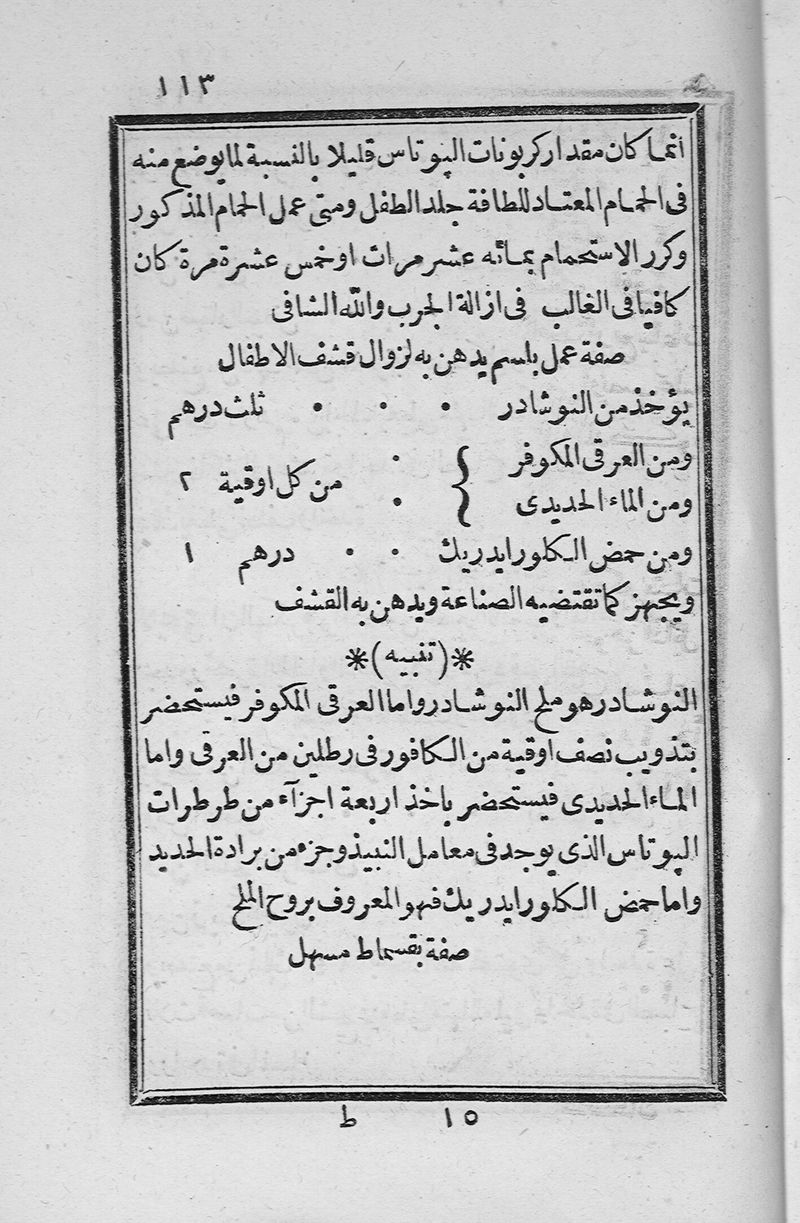 ١١٣
انما كان مقدار كربونات الپوتاس قليلا بالنسبة لما يوضع منه
فى الحمام المعتاد للطافة جلد الطفل ومتى عمل الحمام المذكور
وكرر الاستحمام بمائه عشر مرات او خمس عشرة مرة كان
كافيا فى الغالب فى ازالة الجرب والله الشافى
صفة عمل باسم يدهن به لزوال قشف الاطفال
يؤخذ من النوشادر · · · ثلث درهم
ومن العرقى المكوفر ·
ومن الماء الحديدى · } من كل اوقية ٢
ومن حمض الكلورايدريك · · درهم ١
ويجهز كما تقتضيه الصناعة ويدهن به القشف
*(تنبيه)*
النوشادر هو ملح النوشادر واما العرقى المكوفر فيستحضر
بتذويب نصف اوقية من الكافور فى رطلين من العرقى واما
الماء الحديدى فيستحضر باخذ اربعة اجزآء من طرطرات
الپوتاس الذى يوجد فى معامل النبيذ وجزء من برادة الحديد
واما حمض الكلورايدريك فهو المعروف بروح الملح
صفة بقسماط مسهل
١٥ ط